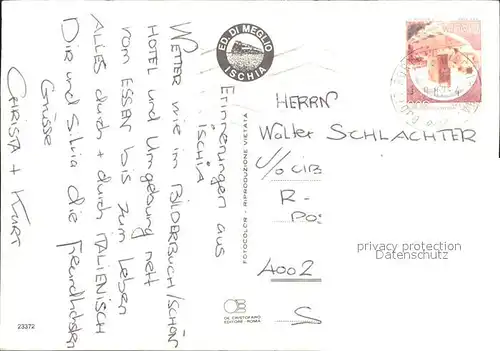 Erinnerungen aus
Ischia
Wetter wie im Bilderbuch/schön
Hotel und Umgebung nett
vom Essen bis zum Leben
ALLES durch + durch ITALIENISCH
Dir und Silvia die freundlichsten
Grüsse
CHRISTA + KURT
ED. DI MEGLIO
ISCHIA
FOTOCOLOR - RIPRODUZIONE VIETATA
DE CRISTOFARO
EDITORE - ROMA
23372
HERRN
Walter SCHLACHTER
c/o CIB
R-
Pos
4002
S
privacy protection
Datenschutz